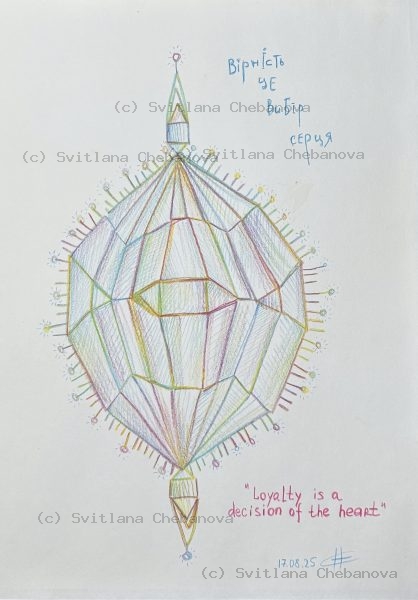 Вірність
це
вибір
серця
(c) Svitlana Chebanova
(c) Svitlana Chebanova
"Loyalty is a
decision of the heart"
(c) Svitlana Chebanova
17.08.25
(c) Svitlana Chebanova